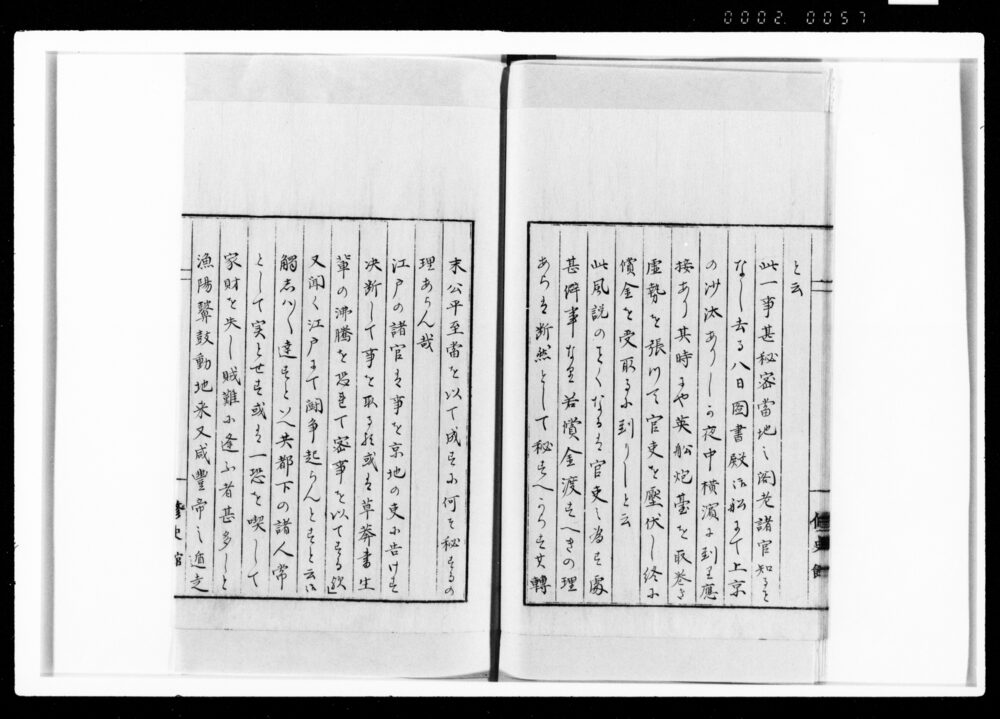 0002.0057
と云
此一事甚秘密當地之閣老諸官知るもの
なし去る八日図書殿汽船にて上京
の沙汰ありしか夜中横濱に到り應
接あり其時にや英船炮臺を取巻き
虚勢を張つて官吏を壓伏し終に
償金を受取るに到りしと云
此風説のことくなるは官吏之為す處
甚僻事なり若償金渡すへきの理
あらは断然として秘すへからす其轉
末公平至當を以て成すに何そ秘するの
理あらん哉
江戸の諸官は事を京地の吏に告けす
决断して事を取る歟或は草莽書生
輩の沸騰を恐れて密事を以てする歟
又聞く江戸にて闘争起らんとすと云
觸しハ達すといへ共都下の諸人常
として実とせす或は一恐を喫して
家財を失し賊難に逢ふ者甚多しと
漁陽鼙鼓動地来又咸豐帝之遁走
修史館
修史館